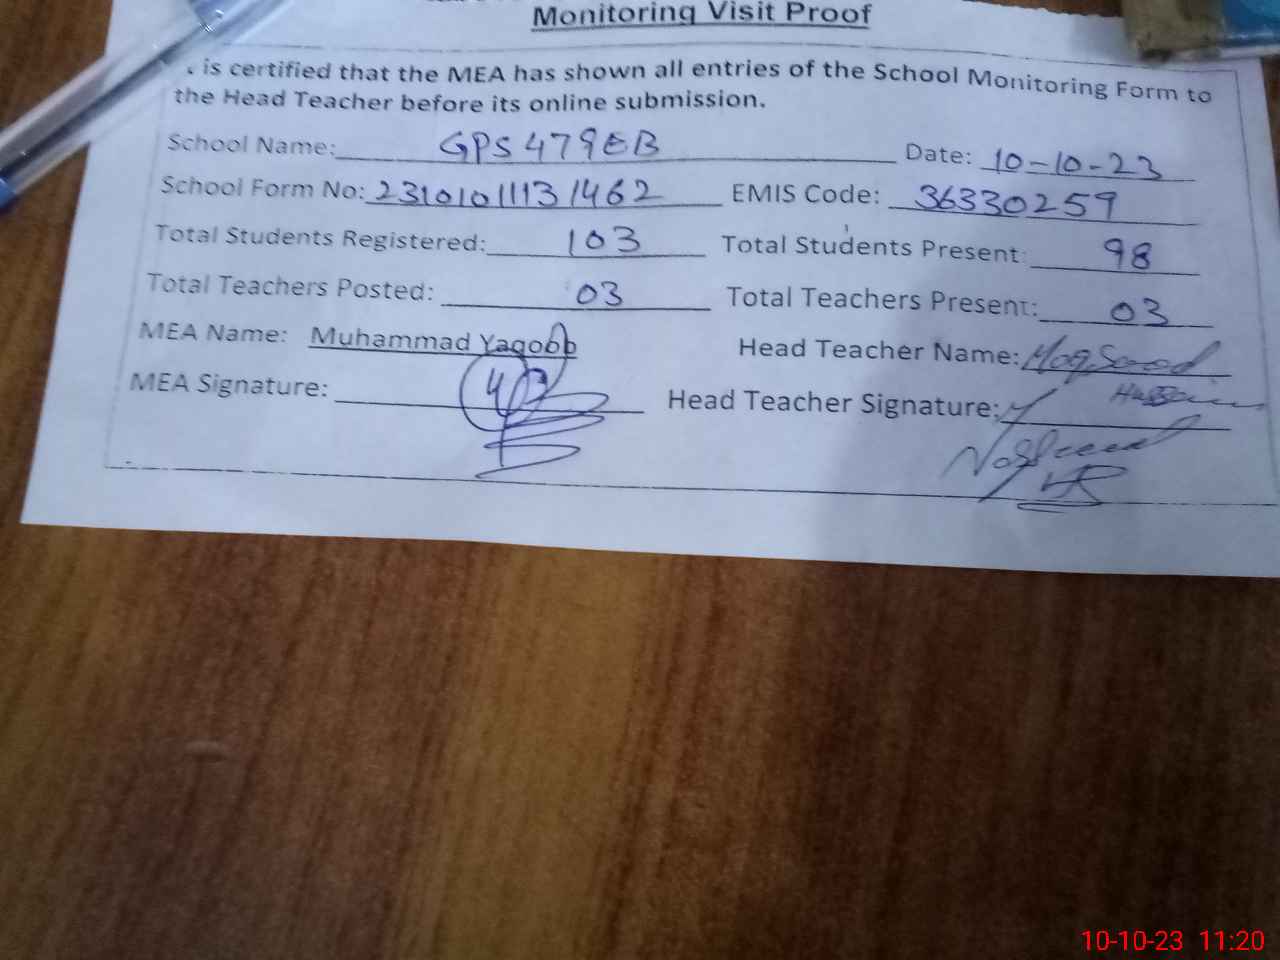 Monitoring Visit Proof
is certified that the MEA has shown all entries of the School Monitoring Form to
the Head Teacher before its online submission.
School Name: GPS 479EB Date: 10-10-23
School Form No: 2310101131462 EMIS Code: 36330259
Total Students Registered: 103 Total Students Present: 98
Total Teachers Posted: 03 Total Teachers Present: 03
MEA Name: Muhammad Yaqoob Head Teacher Name: Maqsood
Hussain
MEA Signature: Head Teacher Signature:
10-10-23 11:20